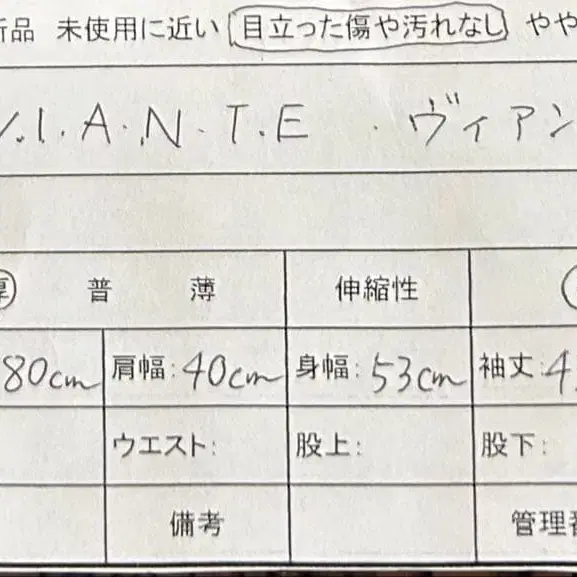 新品 未使用に近い 目立った傷や汚れなし やや
V.I.A.N.T.E ・ ヴィアン
厚 普 薄 伸縮性
80cm 肩幅:40cm 身幅:53cm 袖丈:4
ウエスト: 股上: 股下:
備考 管理番